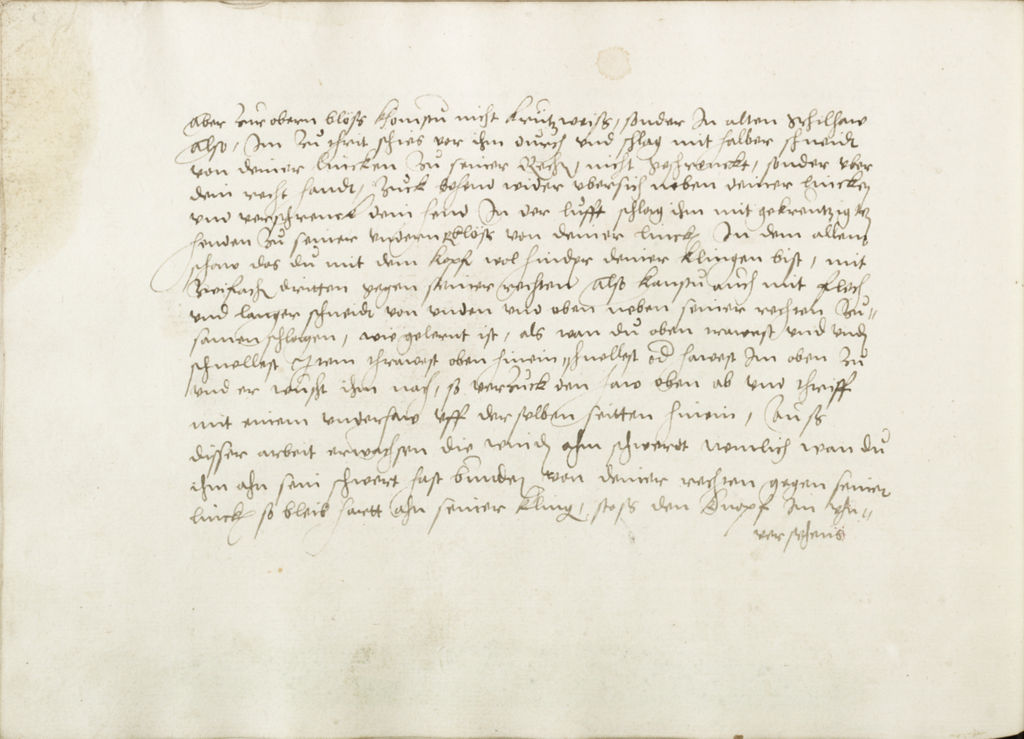 aber zur obern blöss khomstu nicht kreutzweiss, sonder In allen Schilhaw
also, Im Zu thrit schies vor ihm durch und schlag mit halber schneidt
von deiner lincken Zu seiner Rechn, nicht geschrenckt, sonder vber
dein recht handt, Zuck behend wider vbersich neben deiner lincken
vnd verschrenck dein hend In der lufft schlag ihm mit gekreutzigten
henden Zu seiner vndern blöss von deiner linck, In dem allem
schaw das du mit dem kopf wol hinder deiner klingen bist, mit
Zwifach dritten gegen seiner rechten also kanstu auch mit flech
vnd langer schneidt von vnden vnd oben neben seiner rechten Zu=
samen schlagen, wie gelernt ist, als wan du oben
schnellest oben hinein schnellest od hawest Im oben Zu
vnd er wüscht ihm nach, so verzuck den haw oben ab vnd thriff
mit einem vnderhaw vff derselben seitten hinein, Auss
disser arbeit erwachsen die windn ahm schwerdt nemlich wan du
ihm ahn sein schwert hast bunden von deiner rechten gegen seiner
linck so bleib hartt ahn seiner kling, stoss den Knopf Im vhn=
versehens